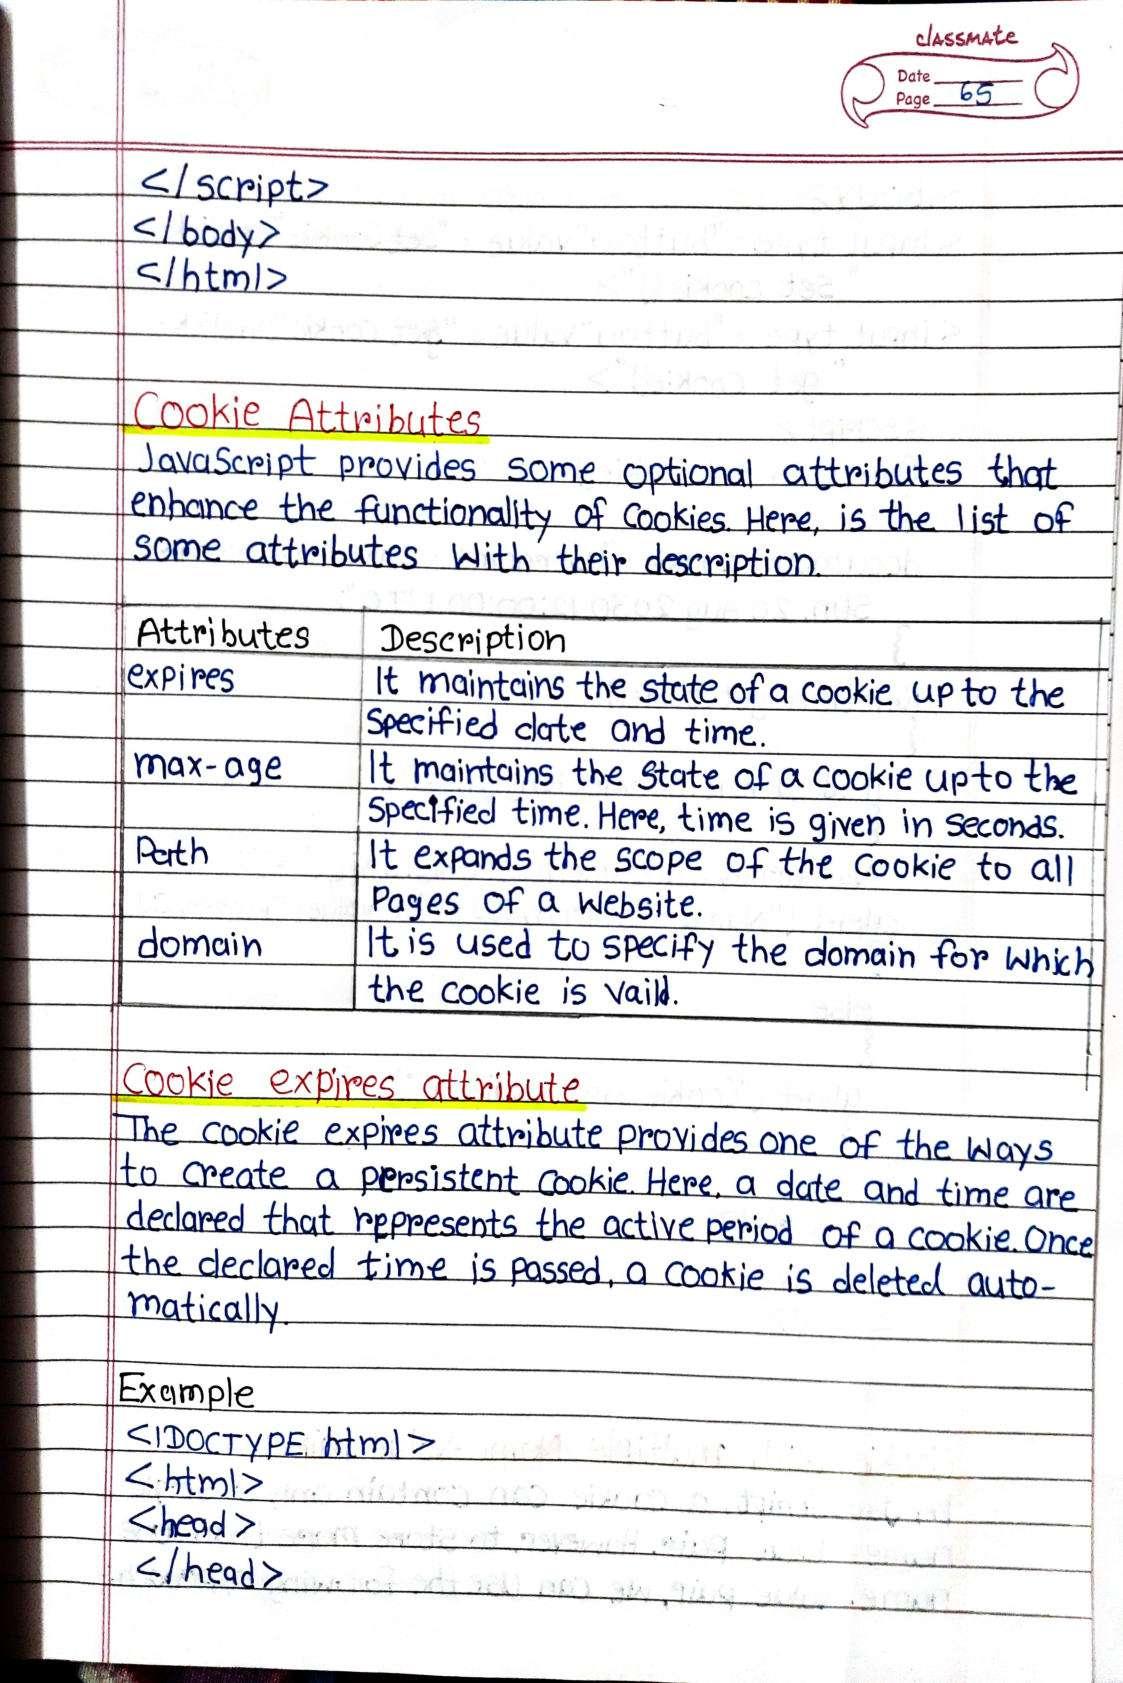 classmate
Date
Page 65
</script>
</body>
</html>
Cookie Attributes
JavaScript provides some optional attributes that
enhance the functionality of Cookies. Here, is the list of
some attributes With their description.
Attributes Description
expires It maintains the state of a cookie up to the
Specified date and time.
max-age It maintains the State of a cookie upto the
Specified time. Here, time is given in seconds.
Path It expands the scope of the cookie to all
Pages of a Website.
domain It is used to specify the domain for which
the cookie is vaild.
Cookie expires attribute
The cookie expires attribute provides one of the ways
to create a persistent Cookie. Here, a date and time are
declared that represents the active period of a cookie. Once
the declared time is passed, a cookie is deleted auto-
matically.
Example
<!DOCTYPE html>
<html>
<head>
</head>